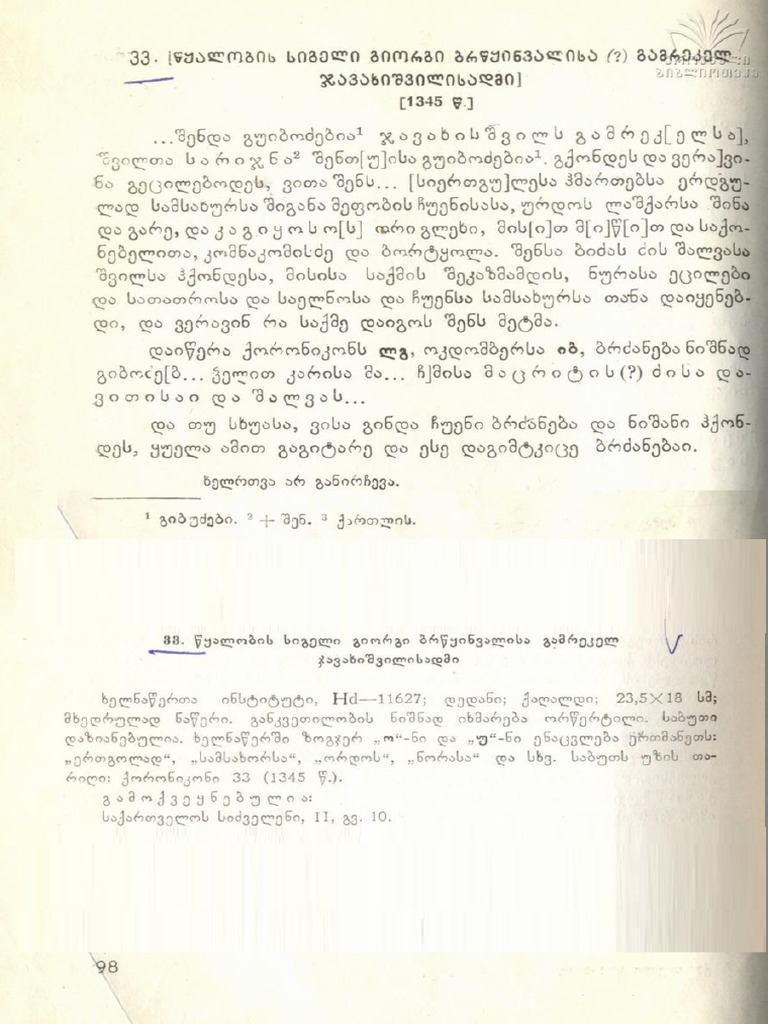 33. [წყალობის სიგელი გიორგი ბრწყინვალისა (?) გამრეკელ
ჯავახიშვილისადმი]
[1345 წ.]
...შენდა გუიბოძებია¹ ჯავახისშვილს გამრეკ[ელსა],
შვილთა სარიჯნა² შენთ[უ]ისა გუიბოძებია¹. გქონდეს და ვერა]ვი-
ნა გეცილებოდეს, ვითა შენს... [სიერთგუ]ლესა ჰმართებსა ერდგუ-
ლად სამსახურსა შიგანა მეფობის ჩუენისასა, ურდოს ლაშქარსა შინა
და გარე, და კაგიყოსო[ს] ორი გლეხი, მის[ი]თ მ[ი]წ[ი]თ და საქო-
ნებელითა, კომნაკომისძე და ბორტყოლა. შენსა ბიძას ძის შალვასა
შვილსა ჰქონდესა, მისისა საქმის შეკაზმამდის, ნურასა ეცილები
და სათათროსა და საელნოსა და ჩუენსა სამსახურსა თანა დაიყენებ-
დი, და ვერავინ რა საქმე დაიგოს შენს მეტმა.
დაიწერა ქორონიკონს ლგ, ოკდომბერსა იბ, ბრძანება ნიშნად
გიბოძე[ბ... ველით კარისა მა... ჩ]მისა მაცრიტის (?) ძისა და-
ვითისაი და შალვას...
და თუ სხუასა, ვისა გინდა ჩუენი ბრძანება და ნიშანი ჰქონ-
დეს, ყუელა ამით გაგიტარე და ესე დაგიმტკიცე ბრძანებაი.
ხელრთვა არ განირჩევა.
¹ გიბუძები. ² + შენ. ³ ქართლის.
33. წყალობის სიგელი გიორგი ბრწყინვალისა გამრეკელ
ჯავახიშვილისადმი
ხელნაწერთა ინსტიტუტი, Hd—11627; დედანი; ქაღალდი; 23,5×18 სმ;
მხედრულად ნაწერი. განკვეთილობის ნიშნად იხმარება ორწერტილი. საბუთი
დაზიანებულია. ხელნაწერში ზოგჯერ „ო“-ნი და „უ“-ნი ენაცვლება ერთმანეთს:
„ერთგოლად“, „სამსახორსა“, „ორდოს“, „ნორასა“ და სხვ. საბუთს უზის თა-
რიღი: ქორონიკონი 33 (1345 წ.).
გამოქვეყნებულია:
საქართველოს სიძველენი, II, გვ. 10.
98